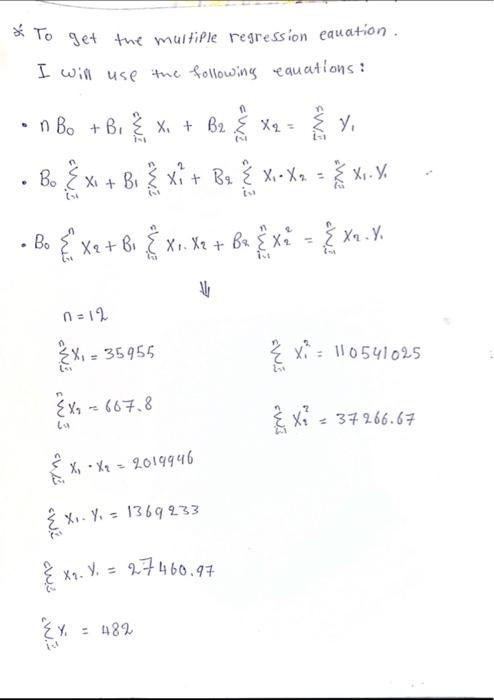 * To get the multiple regression equation.
I will use the following equations:
• n B₀ + B₁ ∑ᵢ₌₁ⁿ X₁ + B₂ ∑ᵢ₌₁ⁿ X₂ = ∑ᵢ₌₁ⁿ Yᵢ
• B₀ ∑ᵢ₌₁ⁿ X₁ + B₁ ∑ᵢ₌₁ⁿ X₁² + B₂ ∑ᵢ₌₁ⁿ X₁·X₂ = ∑ᵢ₌₁ⁿ X₁.Yᵢ
• B₀ ∑ᵢ₌₁ⁿ X₂ + B₁ ∑ᵢ₌₁ⁿ X₁.X₂ + B₂ ∑ᵢ₌₁ⁿ X₂² = ∑ᵢ₌₁ⁿ X₂.Yᵢ
⇓
n = 12
∑ᵢ₌₁ⁿ X₁ = 35955
∑ᵢ₌₁ⁿ X₁² = 110541025
∑ᵢ₌₁ⁿ X₂ = 667.8
∑ᵢ₌₁ⁿ X₂² = 37266.67
∑ᵢ₌₁ⁿ X₁·X₂ = 2019946
∑ᵢ₌₁ⁿ X₁.Yᵢ = 1369233
∑ᵢ₌₁ⁿ X₂.Yᵢ = 27460.97
∑ᵢ₌₁ⁿ Yᵢ = 482